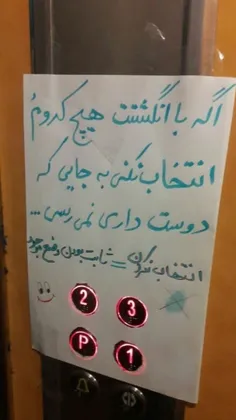 اگه با انگشتت هیچ کدومُ
انتخاب نکنی به جایی که
دوست داری نمی رسی...
انتخاب نکردن = ثابت بودن وضع موجود
2 3
P 1